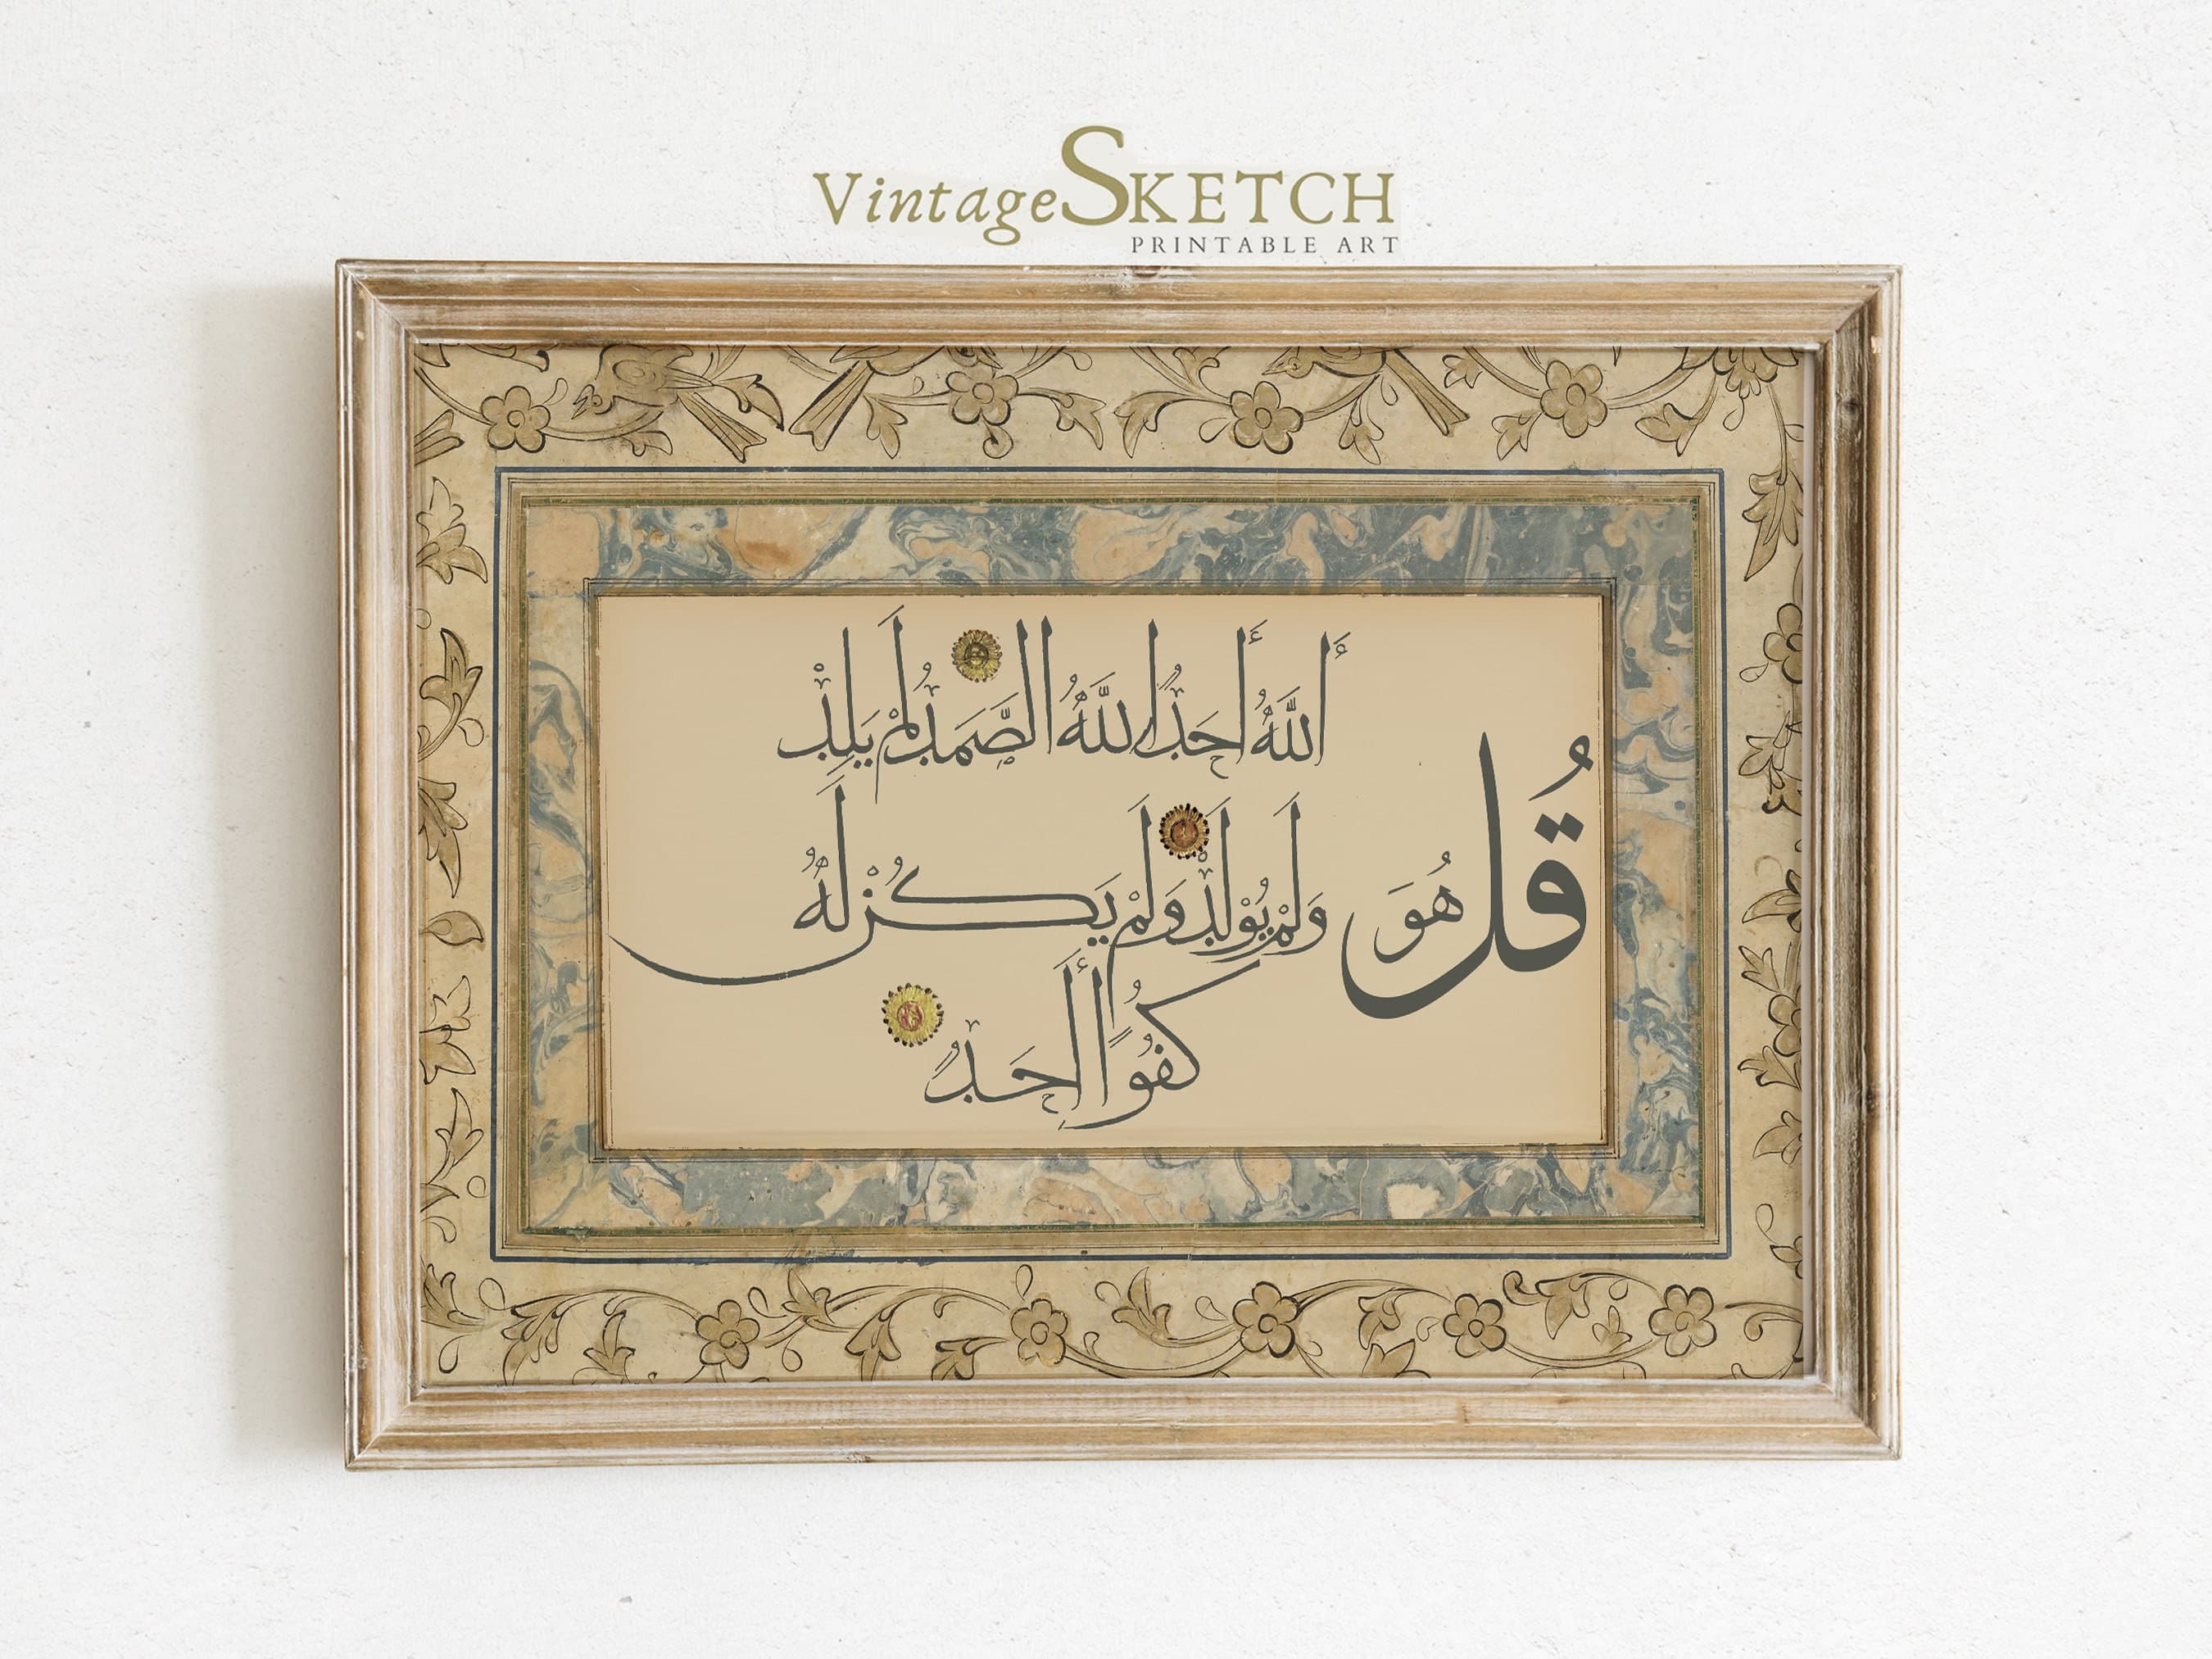 VintageSKETCH
PRINTABLE ART
قُل هُوَ
اللّٰهُ أَحَدٌ اللّٰهُ الصَّمَدُ لَمْ يَلِدْ
وَلَمْ يُولَدْ وَلَمْ يَكُنْ لَهُ
كُفُوًا أَحَدٌ